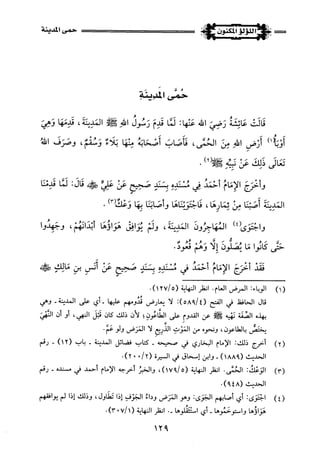 حمى المدينة
اللؤلؤ المكنون
حُمَّى المَدِينَةِ
قَالَتْ عَائِشَةُ رَضِيَ اللهُ عَنْهَا: لَمَّا قَدِمَ رَسُولُ اللهِ ﷺ المَدِينَةَ، قَدِمَهَا وَهِيَ
أَوْبَأُ(١) أَرْضِ اللهِ مِنَ الحُمَّى، فَأَصَابَ أَصْحَابَهُ مِنْهَا بَلَاءٌ وَسُقْمٌ، وصَرَفَ اللهُ
تَعَالَى ذَلِكَ عَنْ نَبِيِّهِ ﷺ(٢).
وأَخْرَجَ الإِمَامُ أَحْمَدُ فِي مُسْنَدِهِ بِسَنَدٍ صَحِيحٍ عَنْ عَلِيٍّ ﵁ قَالَ: لَمَّا قَدِمْنَا
المَدِينَةَ أَصَبْنَا مِنْ ثِمَارِهَا، فَاجْتَوَيْنَاهَا وأَصَابَنَا بِهَا وَعْكٌ(٣).
واجْتَوَى(٤) المُهَاجِرُونَ المَدِينَةَ، ولَمْ يُوَافِقْ هَوَاؤُهَا أَبْدَانَهُمْ، وجَهِدُوا
حَتَّى كَانُوا مَا يُصَلُّونَ إِلَّا وَهُمْ قُعُودٌ.
فَقَدْ أَخْرَجَ الإِمَامُ أَحْمَدُ فِي مُسْنَدِهِ بِسَنَدٍ صَحِيحٍ عَنْ أَنَسِ بنِ مَالِكٍ ﵁
(١) الوباء: المرض العام. انظر النهاية (١٢٧/٥).
قال الحافظ في الفتح (٥٨٩/٤): لا يعارض قُدومهم عليها ـ أي على المدينة ـ وهي
بهذه الصِّفة نَهْيه ﷺ عن القدوم على الطَّاعُونِ؛ لأن ذلك كان قَبْل النهي، أو أن النَّهْيَ
يختَصُّ بالطاعون، ونحوه من المَوْتِ الذَّرِيعِ لا المَرَض ولو عَمَّ.
(٢) أخرج ذلك: الإمام البخاري في صحيحه ـ كتاب فضائل المدينة ـ باب (١٢) ـ رقم
الحديث (١٨٨٩) ـ وابن إسحاق في السيرة (٢٠٠/٢).
(٣) الوَعْكُ: الحُمَّى. انظر النهاية (١٧٩/٥)، والخبَرُ أخرجه الإمام أحمد في مسنده ـ رقم
الحديث (٩٤٨).
(٤) اجْتَوَى: أي أصابهم الجَوَى: وهو المَرَض وداءُ الجَوْفِ إذا تَطَاوَل، وذلك إذا لم يوافقهم
هَوَاؤُها واستَوْخَمُوها ـ أي استَثْقَلُوها ـ. انظر النهاية (٣٠٧/١).
١٢٩